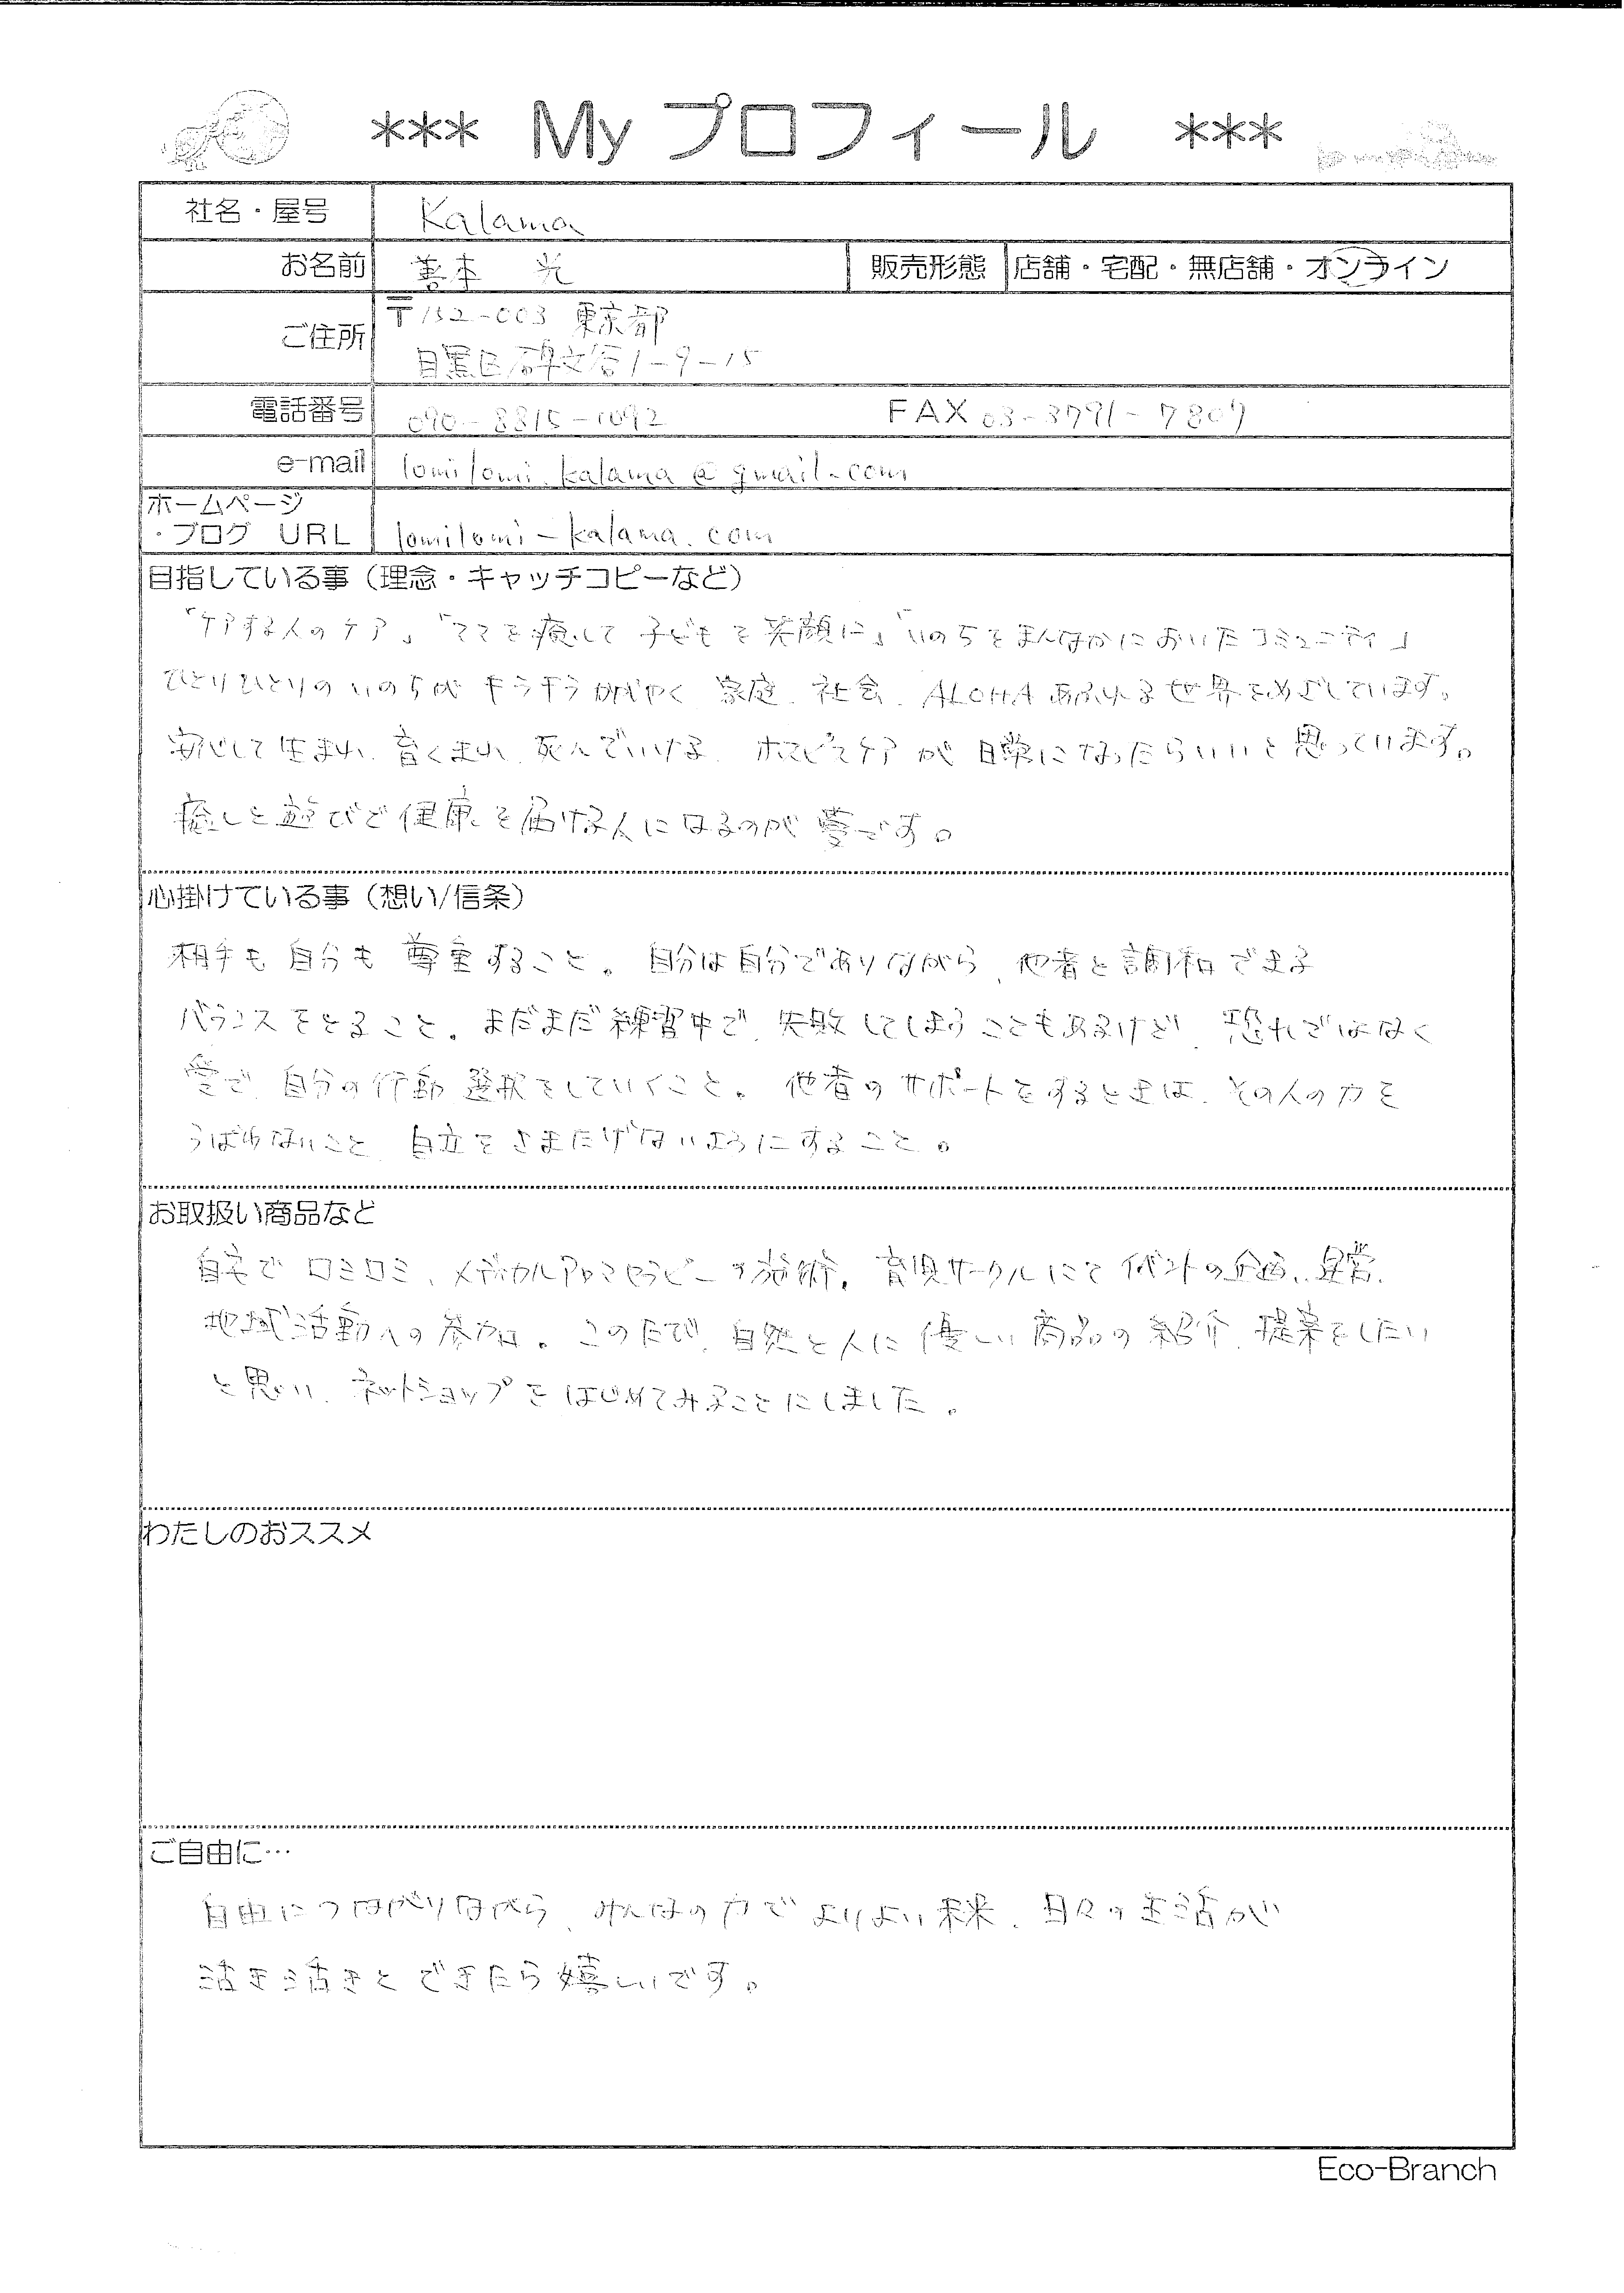 *** My プロフィール ***
社名・屋号 Kalama
お名前 善本 光 販売形態 店舗・宅配・無店舗・オンライン
ご住所 〒152-003 東京都
目黒区碑文谷1-9-15
電話番号 090-8815-1092 FAX 03-3791-7807
e-mail lomilomi.kalama@gmail.com
ホームページ
・ブログ URL lomilomi-kalama.com
目指している事（理念・キャッチコピーなど）
「ケアする人のケア」「ママを癒して子どもを笑顔に」「いのちをまんなかにおいたコミュニティ」
ひとりひとりのいのちがキラキラかがやく 家庭、社会、ALOHAあふれる世界をめざしています。
安心して生まれ、育くまれ、死んでいける、ホスピスケアが日常になったらいいと思っています。
癒しと遊びと健康を届ける人になるのが夢です。
心掛けている事（想い/信条）
相手も自分も尊重すること。自分は自分でありながら、他者と調和できる
バランスをとること。まだまだ練習中で、失敗してしまうこともあるけど、恐れではなく
愛で、自分の行動、選択をしていくこと。他者のサポートをするときは、その人の力を
うばわないこと、自立をさまたげないようにすること。
お取扱い商品など
自宅でロミロミ、メディカルアロマセラピーの施術。育児サークルにてイベントの企画、運営、
地域活動への参加。このたび、自然と人に優しい商品の紹介、提案をしたい
と思い、ネットショップをはじめてみることにしました。
わたしのおススメ
ご自由に…
自由につながりながら、みんなの力でよりよい未来、日々の生活が
活き活きとできたら嬉しいです。
Eco-Branch